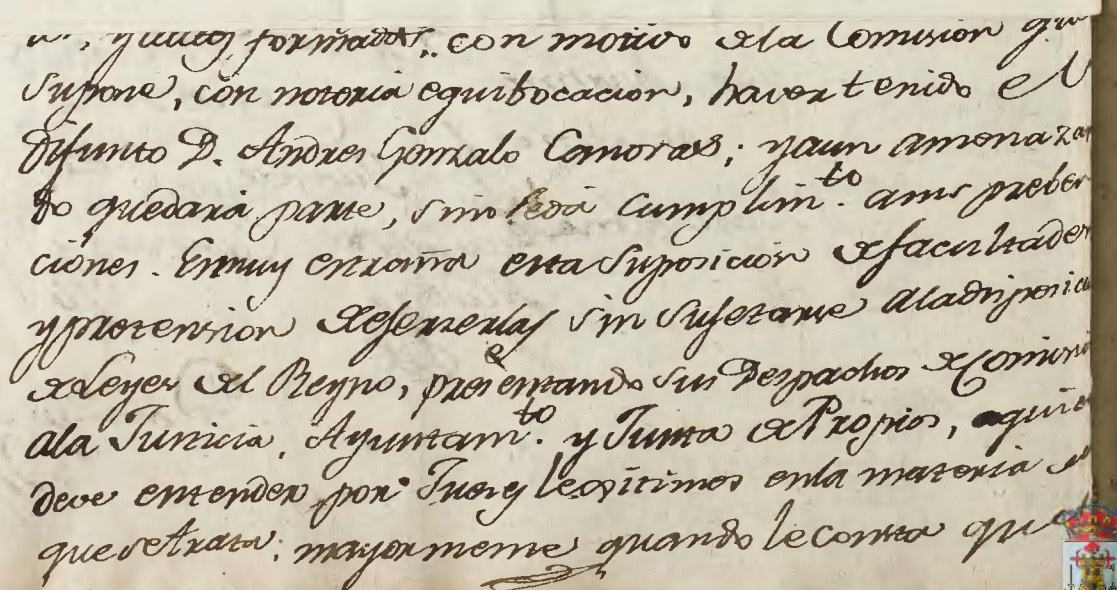 formados, con motivo dela Comision que
Supone, con notoria equibocacion, haver tenido el
Difunto D. Andres Gonzalo Camoras; yaun amenazan
do quedará parte, sino seda cumplim.to asus preben
ciones. Esmuy estraña esta Suposicion de facultades
ypretension de exercerlas sin sugetarse aladisposicion
de Leyes del Reyno, presentando sus Despachos de Comision
ala Justicia, Ayuntam.to y Junta de Propios, aquien
deve entender por Juezes legitimos enla materia
que setrata; mayormente quando leconsta que